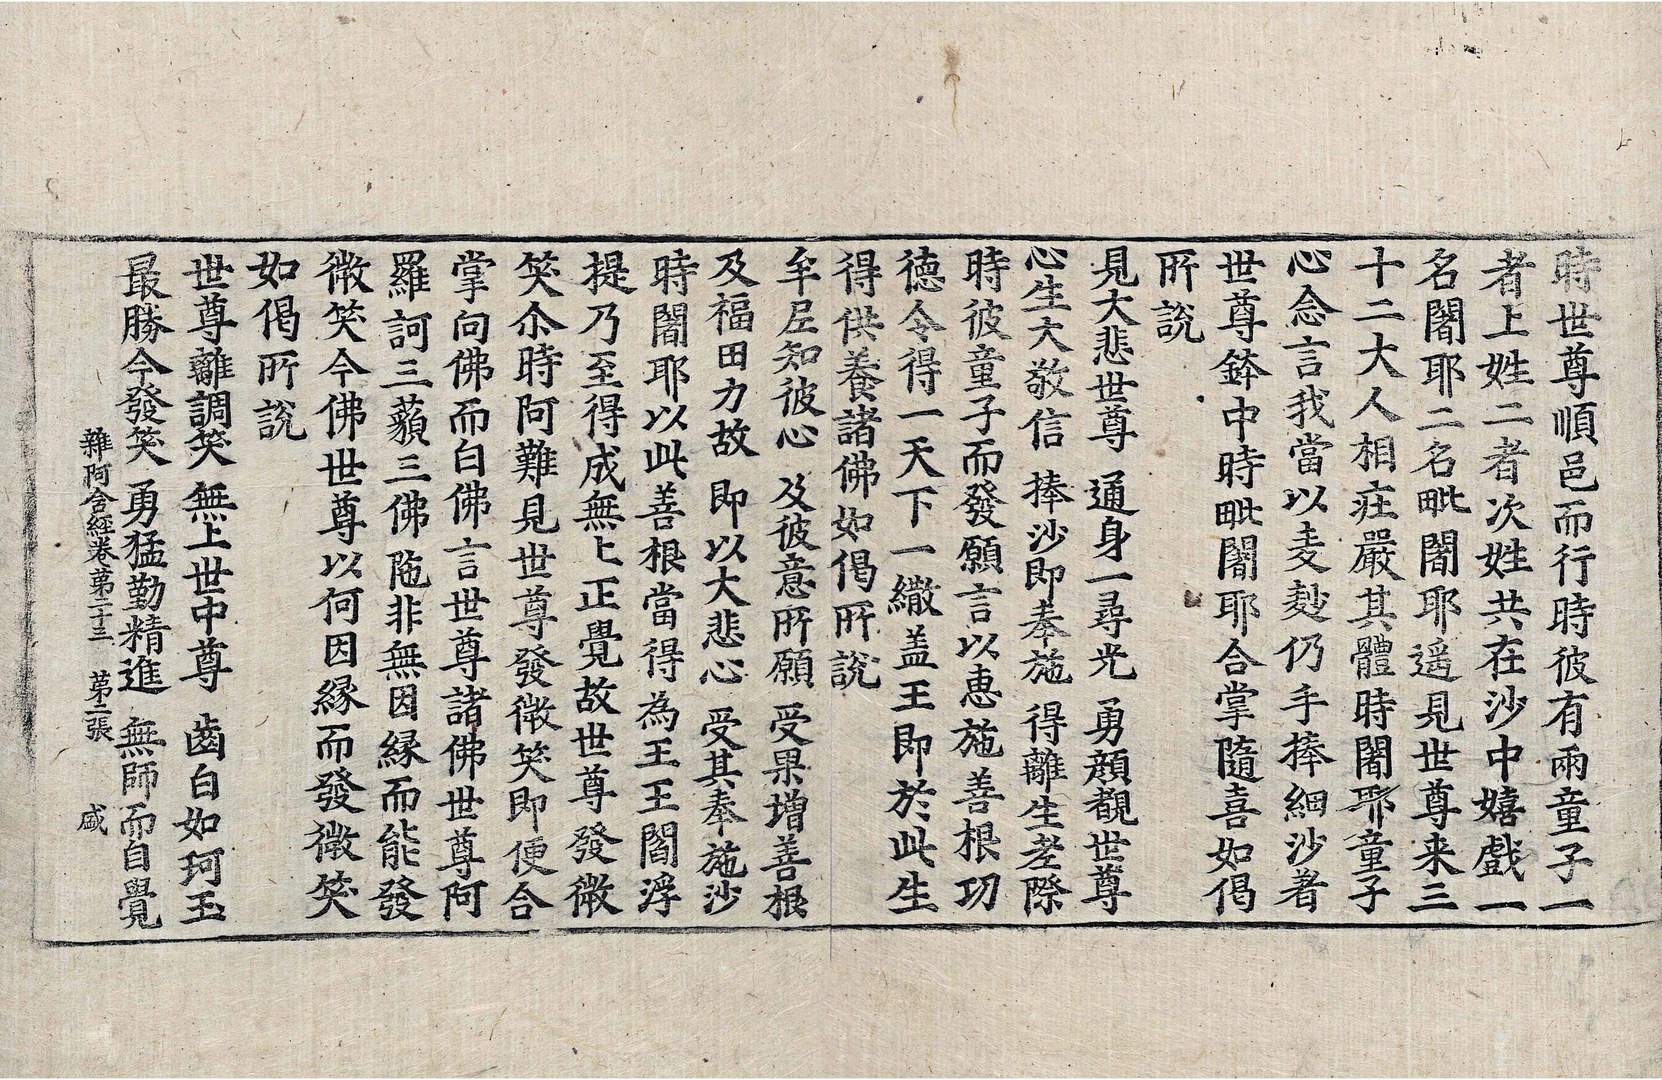 時世尊順邑而行時彼有兩童子一
者上姓二者次姓共在沙中嬉戲一
名闍耶二名毗闍耶遥見世尊来三
十二大人相庄嚴其體時闍耶童子
心念言我當以麦麨仍手捧細沙著
世尊鉢中時毗闍耶合掌隨喜如偈
所說
見大悲世尊 通身一尋光 勇顔覩世尊
心生大敬信 捧沙即奉施 得離生老際
時彼童子而發願言以惠施善根功
德令得一天下一繖盖王即於此生
得供養諸佛如偈所說
牟尼知彼心 及彼意所願 受果增善根
及福田力故 即以大悲心 受其奉施沙
時闍耶以此善根當得為王王閻浮
提乃至得成無上正覺故世尊發微
笑尒時阿難見世尊發微笑即便合
掌向佛而白佛言世尊諸佛世尊阿
羅訶三藐三佛陁非無因縁而能發
微笑今佛世尊以何因縁而發微笑
如偈所說
世尊離調笑 無上世中尊 齒白如珂玉
最勝今發笑 勇猛勤精進 無師而自覺
雜阿含經卷第二十三 第二張 盛